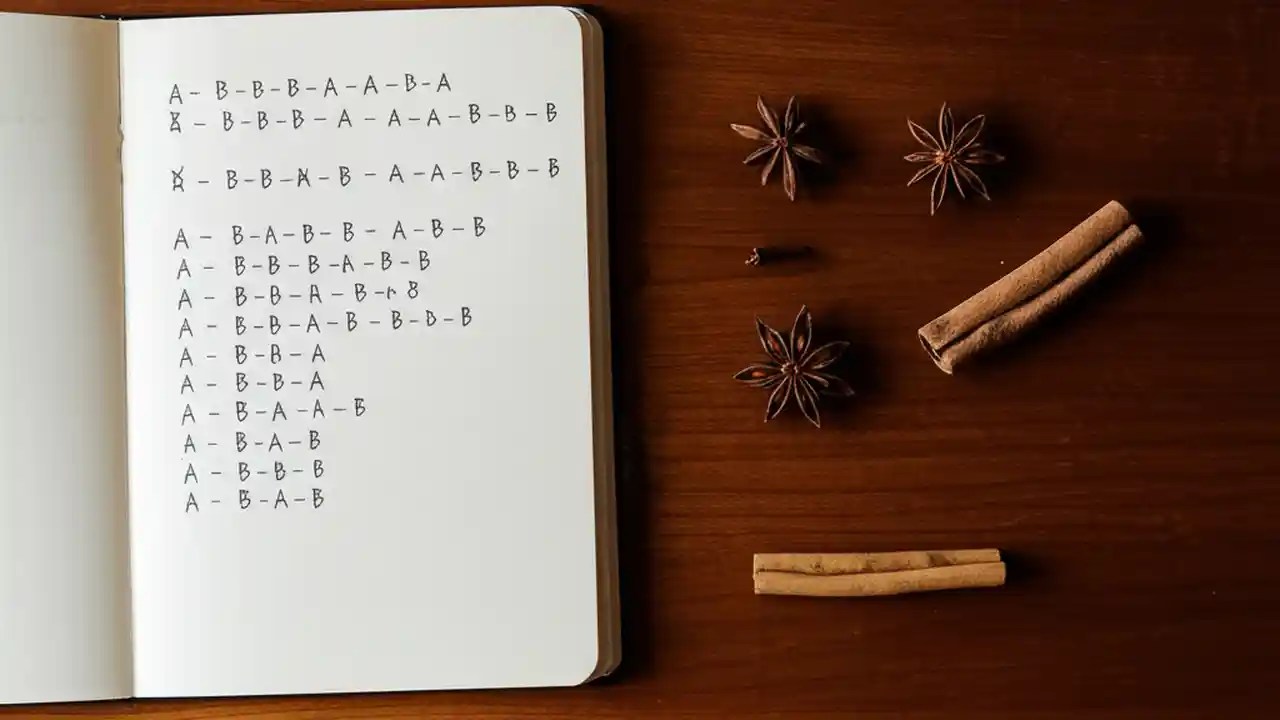 A - B-B-B-A-A-B-A
- B-B-B-A-A-A-B-B-B
- B-B- -B-A-A-B-B-B
A - B-A-B-B-A-B-B
A - B-B-B-A-B-B
A - B-B-A-B- 8
A - B-B-A-B-B-D-B
A - B-B-A
A - B-B-A
A - B-A-A-B
A - B-A-B
A - B-B-B
A - B-A-B